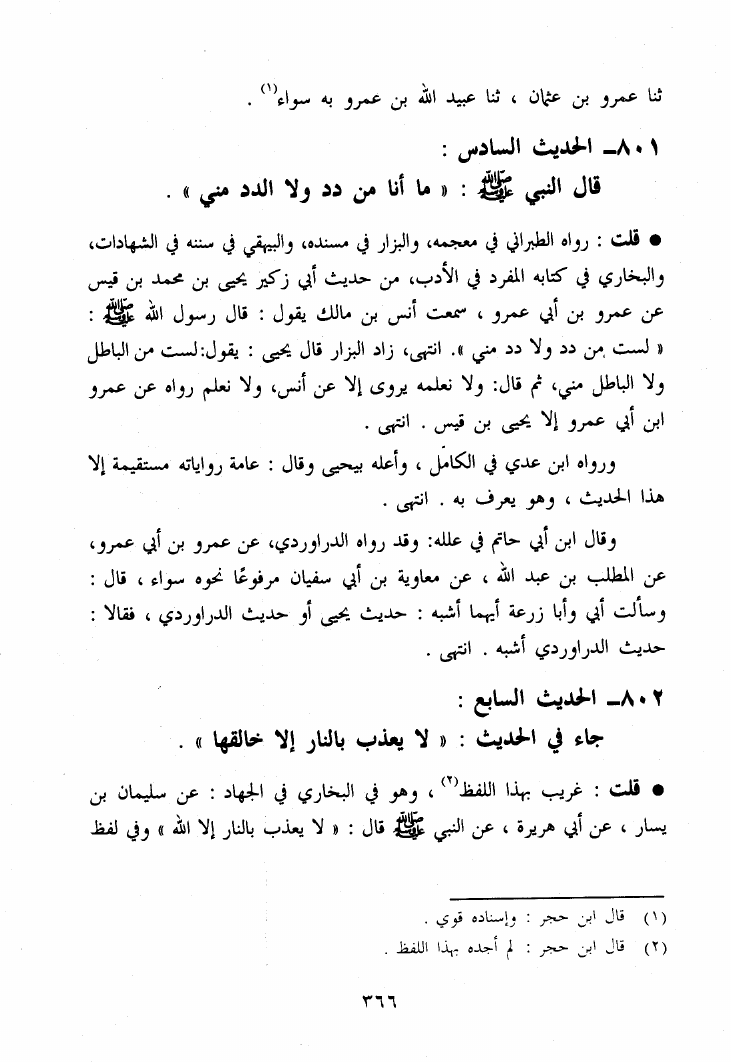 ثنا عمرو بن عثمان ، ثنا عبيد الله بن عمرو به سواء(١) .
٨٠١ـ الحديث السادس :
قال النبي ﷺ : « ما أنا من دد ولا الدد مني » .
● قلت : رواه الطبراني في معجمه، والبزار في مسنده، والبيهقي في سننه في الشهادات،
والبخاري في كتابه المفرد في الأدب، من حديث أبي زكير يحيى بن محمد بن قيس
عن عمرو بن أبي عمرو ، سمعت أنس بن مالك يقول : قال رسول الله ﷺ :
« لست من دد ولا دد مني ». انتهى، زاد البزار قال يحيى : يقول: لست من الباطل
ولا الباطل مني، ثم قال: ولا نعلمه يروى إلا عن أنس، ولا نعلم رواه عن عمرو
ابن أبي عمرو إلا يحيى بن قيس . انتهى .
ورواه ابن عدي في الكامل ، وأعله بيحيى وقال : عامة رواياته مستقيمة إلا
هذا الحديث ، وهو يعرف به . انتهى .
وقال ابن أبي حاتم في علله: وقد رواه الدراوردي، عن عمرو بن أبي عمرو،
عن المطلب بن عبد الله ، عن معاوية بن أبي سفيان مرفوعًا نحوه سواء ، قال :
وسألت أبي وأبا زرعة أيهما أشبه : حديث يحيى أو حديث الدراوردي ، فقالا :
حديث الدراوردي أشبه . انتهى .
٨٠٢ـ الحديث السابع :
جاء في الحديث : « لا يعذب بالنار إلا خالقها » .
● قلت : غريب بهذا اللفظ(٢) ، وهو في البخاري في الجهاد : عن سليمان بن
يسار ، عن أبي هريرة ، عن النبي ﷺ قال : « لا يعذب بالنار إلا الله » وفي لفظ
(١) قال ابن حجر : وإسناده قوي .
(٢) قال ابن حجر : لم أجده بهذا اللفظ .
٣٦٦